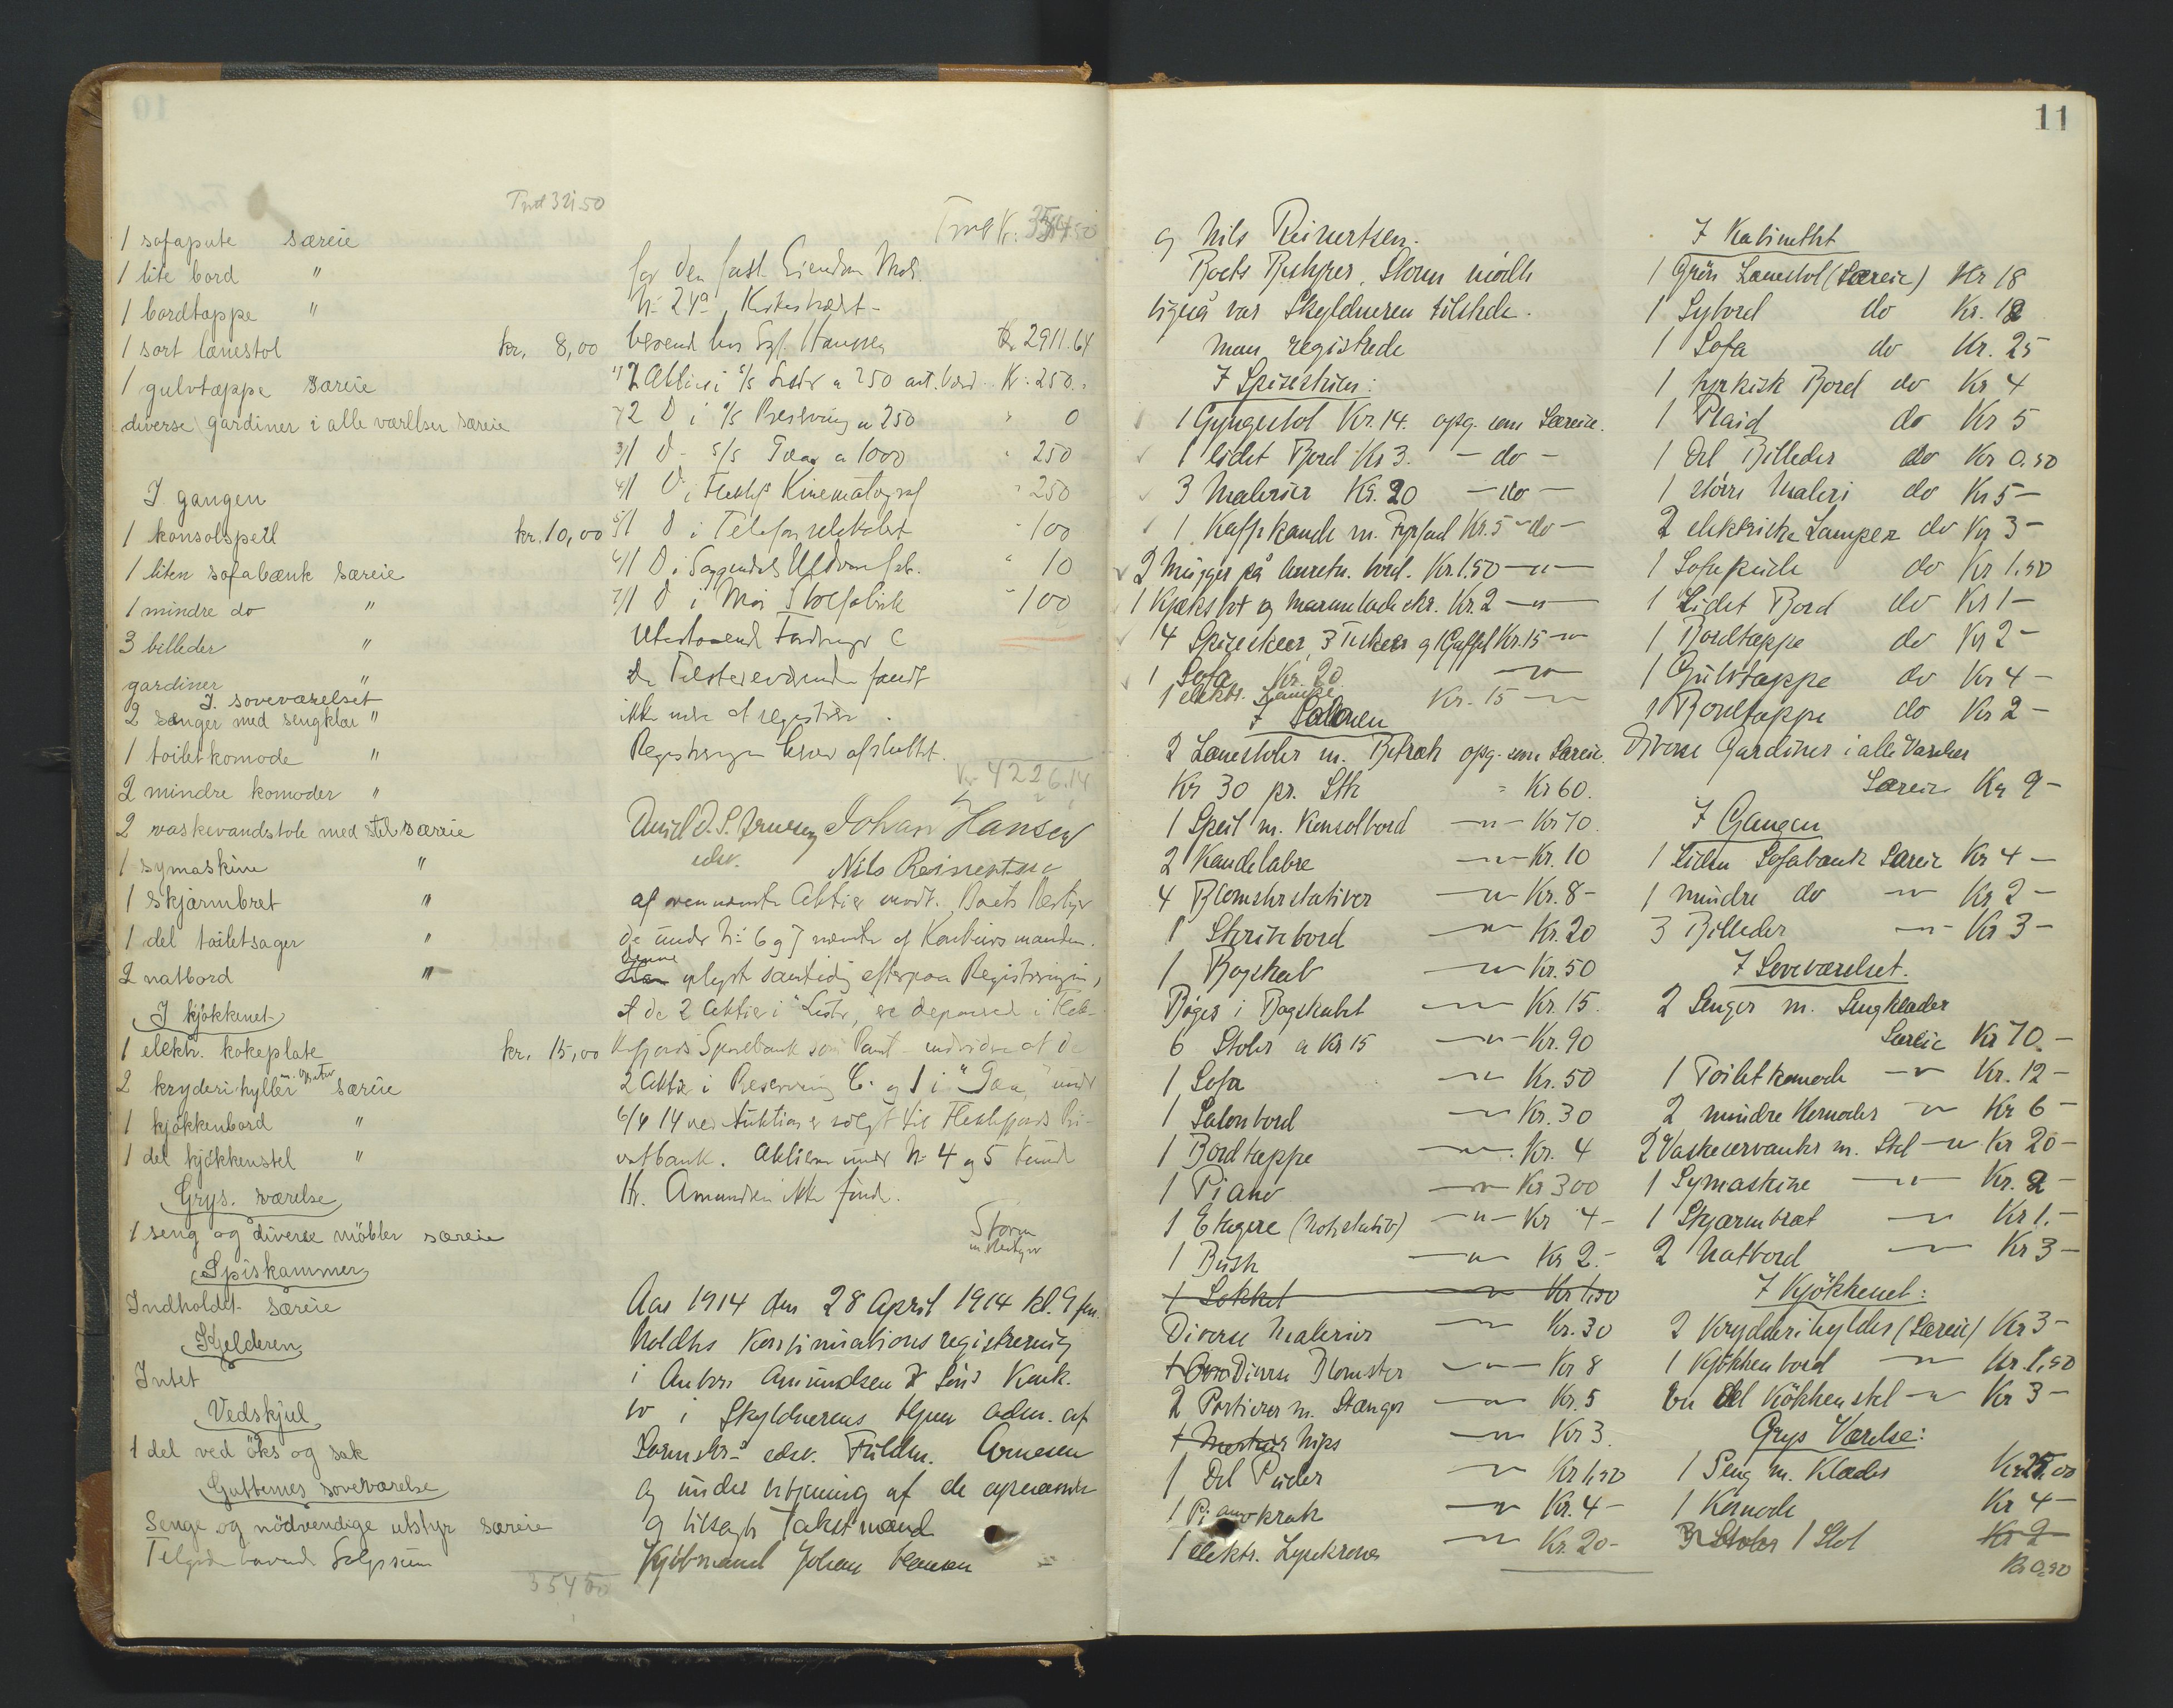 10
Trsl 321.50
1 sofapute særeie
1 lite bord "
1 bordtæppe "
1 sort lænestol kr. 8,00
1 gulvtæppe særeie
diverse gardiner i alle værelser særeie
I gangen
1 konsolspeil kr. 10,00
1 liten sofabænk særeie
1 mindre do "
3 billeder "
gardiner "
I soveværelset
2 senger med sengklær "
1 toiletkomode "
2 mindre komoder "
2 vaskevandstole med stel særeie
1 symaskine "
1 skjærmbret "
1 del toiletsager "
2 natbord "
I kjøkkenet
1 elektr. kokeplate kr. 15,00
2 kryderihyller særeie
1 kjøkkenbord "
1 del kjøkkenstel "
Grys. værelse
1 seng og diverse møbler særeie
Spiskammer
Indholdet særeie
Kjelderen
Intet
Vedskjul
1 del ved øks og sak
Guttenes soveværelse
Senge og nødvendige utstyr særeie
354 50
for den fast. Eiendom Mat.
N: 24a
beroend hos Sgf. Hansen Kr 2911.64
1) 2 Aktier i S/S Lister a 250 ant. værd Kr. 250.
2) 2 D i S/S a 250 " 0
3) 1 D - S/S a 1000 " 250
4) 1 D i Kinematograf " 250
5) 1 D i Telefonselskabet " 100
6) 1 D i " 10
7) 1 D i Moi " 100
Utestaaende Fordringer
De Tilstedeværende fandt
ikke mere at registrere.
Registreringen blev afsluttet.
Kr 4226.14
Johan Hansen
Nils Reinertsen
af ovennævnte Aktier modt. Boets Bestyr
de under N: 6 og 7 nævnte af Konkursmanden.
Denne oplyste samtidig efterpaa Registreringen,
at de 2 Aktier i "Lister" er deponeret i Flek-
kefjords Sparebank som Pant - endvidere at de
2 Aktier i og 1 i under
6/4 14 ved Auktion er solgt til Flekkefjords Pri-
vatbank. Aktierne under N: 4 og 5 kunde
Hr. Amundsen ikke finde.
Storm
Aar 1914 den 28 April 1914 kl. 9 fm.
holdtes Kontinuationsregistrering
i Anton Amundsen & Søns Konk.
bo i Skyldnerens Hjem adm. af
Sorenskr. edsv. Fuldm. Arnesen
og under Overvær af de opnævnte
og tilsagte Takstmænd
Kjøbmand Johan Hansen
11
og Nils Reinertsen.
Boets Bestyrer, Storm mødte
ligesaa var Skyldneren tilstede.
Man registrerede
I Spisestuen:
1 Gyngestol Kr. 14. opg. som Særeie.
1 lidet Bord Kr 3. - do -
3 Malerier Kr. 20 - do -
1 Kaffekande m. Fyrfad Kr. 5 - do -
2 Mugger på Anretn. bord. Kr. 1.50 - " -
1 Kjæksbøt og Marmeladeskr. Kr. 2 - " -
4 Spiseskeer, 3 Teskeer og 1 Gaffel Kr. 15 - " -
1 Sofa Kr. 20 - " -
1 elektr. Lampe Kr. 15 - " -
I Salonen
2 Lænestoler m. Betræk opg. som Særeie.
Kr 30 pr. Stk = Kr 60.
1 Speil m. Konsolbord - " - Kr 70.
2 Kandelabre - " - Kr. 10
4 Blomsterstativer - " - Kr. 8 -
1 Skrivebord - " - Kr. 20
1 Bogskab - " - Kr. 50
Bøger i Bogskabet - " - Kr. 15.
6 Stoler a Kr 15 - " - Kr. 90
1 Sofa - " - Kr. 50
1 Salonbord - " - Kr. 30
1 Bordtæppe - " - Kr. 4
1 Piano - " - Kr 300
1 Etagere (Notestativ) - " - Kr 4 -
1 Busk - " - Kr 2. -
1 Sokkel - " - Kr 1,50
Diverse Malerier - " - Kr. 30
Diverse Blomster - " - Kr 8
2 Portierer m. Stænger - " - Kr. 5
Nips - " - Kr 3.
1 Del Puder - " - Kr 1,50
1 Pianokrak - " - Kr. 4 -
1 elektr. Lysekrone - " - Kr. 20 -
I Kabinettet
1 Grøn Lænestol (Særeie) Kr 18
1 Sybord do Kr. 12
1 Sofa do Kr. 25
1 tyrkisk Bord do Kr 4
1 Plaid do Kr 5
1 Del Billeder do Kr 0.50
1 større Maleri do Kr 5 -
2 elektriske Lamper do Kr 3 -
1 Sofapude do Kr 1,50
1 Lidet Bord do Kr 1 -
1 Bordtæppe do Kr 2 -
1 Gulvtæppe do Kr 4 -
1 Bordtæppe do Kr 2 -
Diverse Gardiner i alle Værelser
Særeie Kr 9 -
I Gangen
1 liden Sofabænk Særeie Kr 4 -
1 mindre do - " - Kr 2 -
3 Billeder - " - Kr 3 -
I Soveværelset.
2 Senger m. Sengklæder
Særeie Kr 70. -
1 Toiletkomode - " - Kr. 12 -
2 mindre Komoder - " - Kr 6 -
2 Vaskeservanter m. Stel - " - Kr 20 -
1 Symaskine - " - Kr. 2 -
1 Skjærmbræt - " - Kr 1. -
2 Natbord - " - Kr 3 -
I Kjøkkenet:
2 Krydderihylder (Særeie) Kr 3 -
1 Kjøkkenbord - " - Kr. 1,50
En del Kökkenstel - " - Kr 3 -
Grys Værelse:
1 Seng m. Klæder Kr 25,00
1 Komode Kr 4 -
1 Stol Kr 2
Kr 0,50